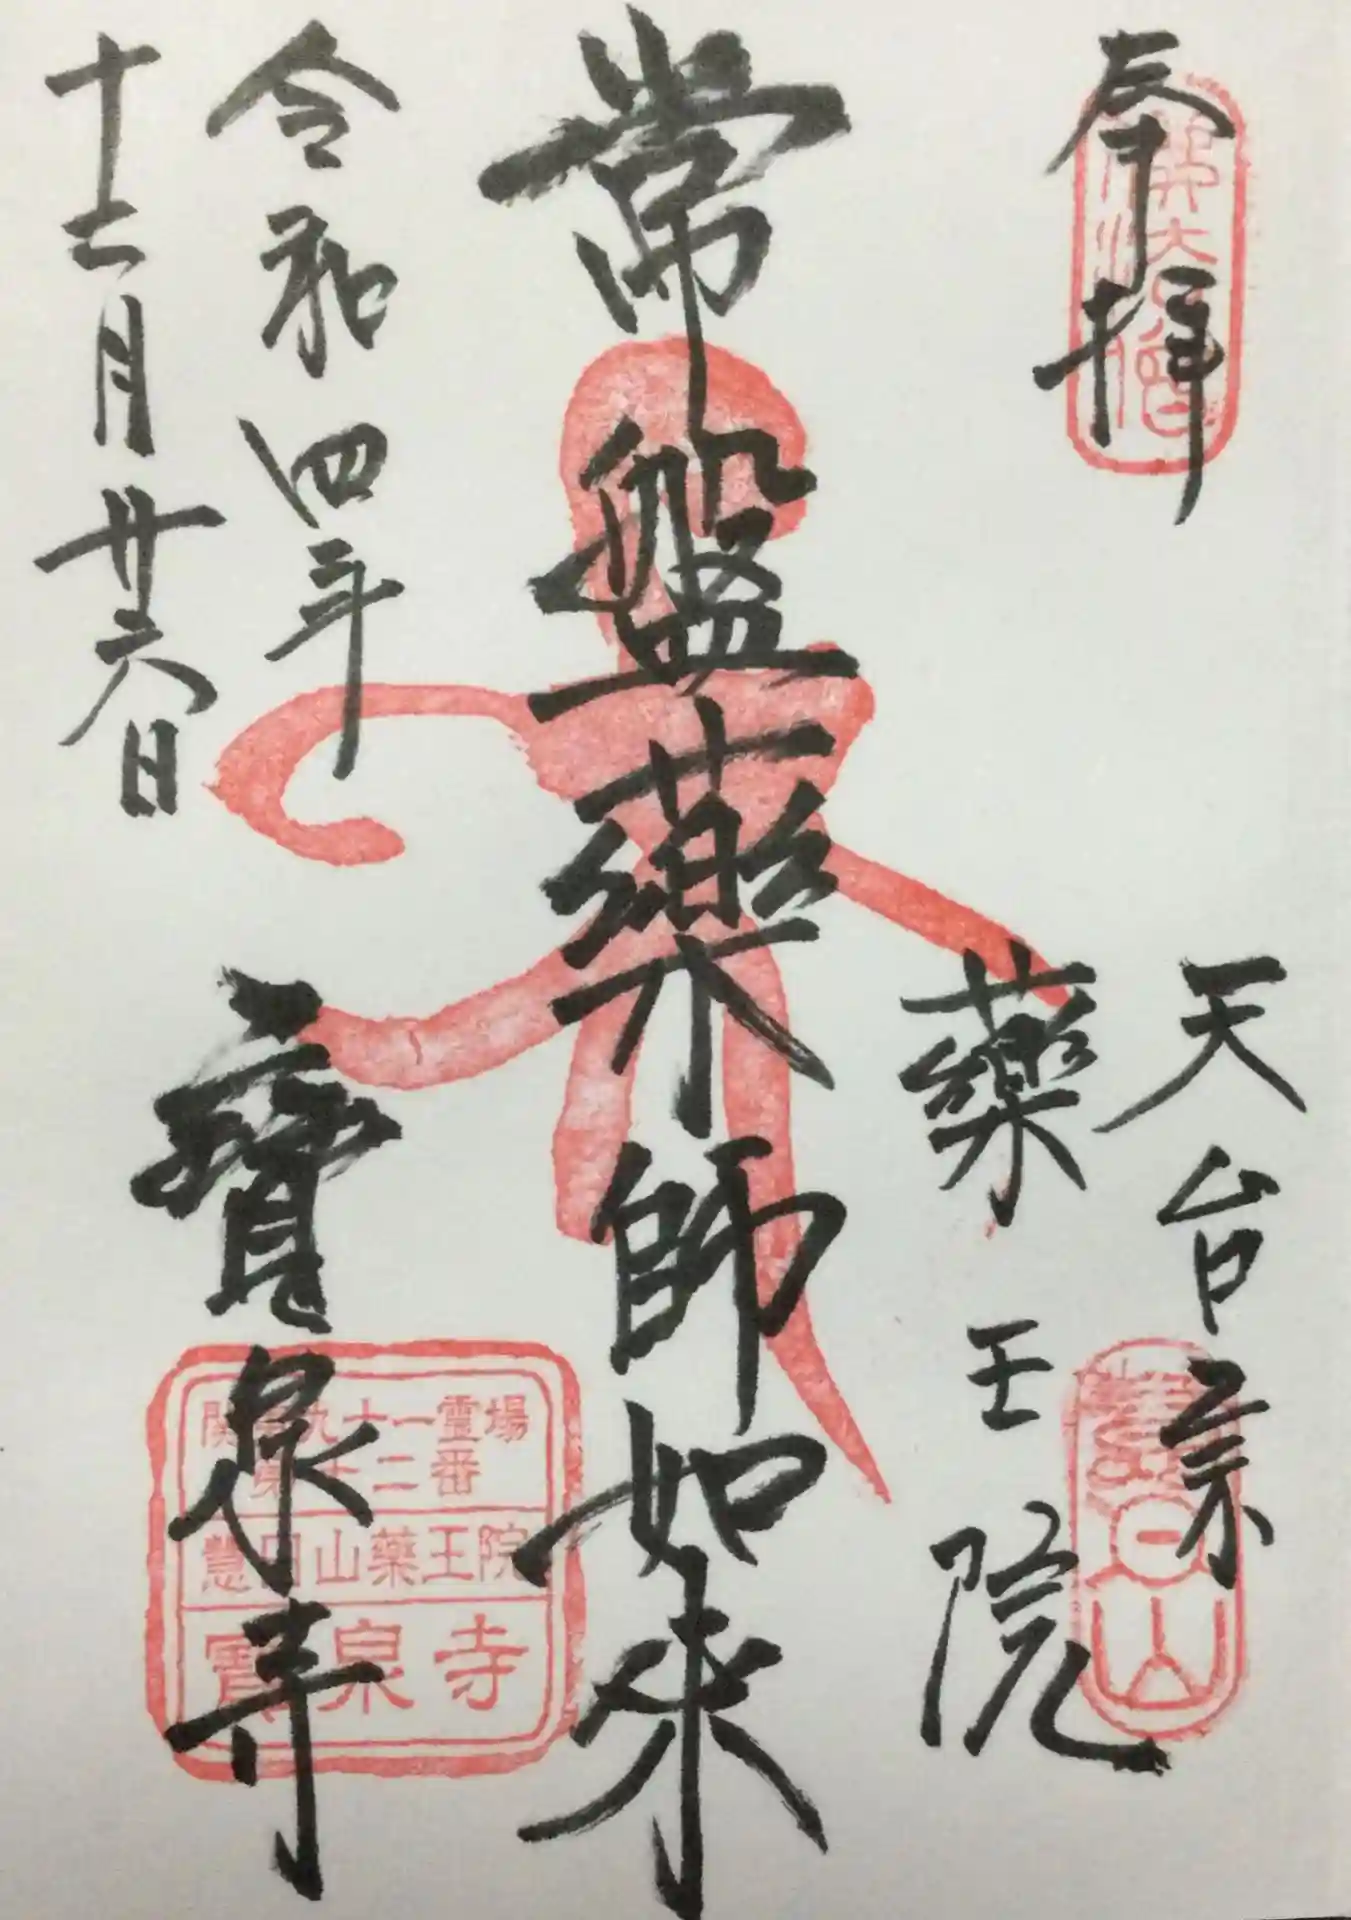 奉拝
佛法僧
天台宗
薬王院
常盤薬師如来
令和四年
十二月廿六日
寶泉寺
関 九十一霊場
第 十二番
慧日山藥王院
寳泉寺